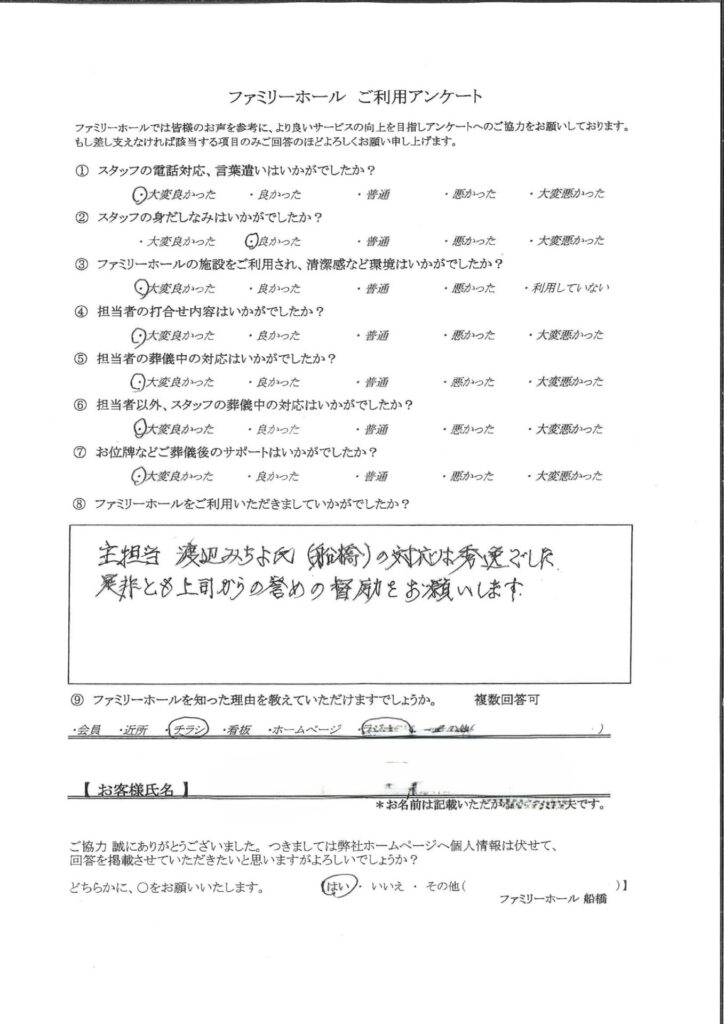 ファミリーホール ご利用アンケート
ファミリーホールでは皆様のお声を参考に、より良いサービスの向上を目指しアンケートへのご協力をお願いしております。
もし差し支えなければ該当する項目のみご回答のほどよろしくお願い申し上げます。
① スタッフの電話対応、言葉遣いはいかがでしたか？
・大変良かった ・良かった ・普通 ・悪かった ・大変悪かった
② スタッフの身だしなみはいかがでしたか？
・大変良かった ・良かった ・普通 ・悪かった ・大変悪かった
③ ファミリーホールの施設をご利用され、清潔感など環境はいかがでしたか？
・大変良かった ・良かった ・普通 ・悪かった ・利用していない
④ 担当者の打合せ内容はいかがでしたか？
・大変良かった ・良かった ・普通 ・悪かった ・大変悪かった
⑤ 担当者の葬儀中の対応はいかがでしたか？
・大変良かった ・良かった ・普通 ・悪かった ・大変悪かった
⑥ 担当者以外、スタッフの葬儀中の対応はいかがでしたか？
・大変良かった ・良かった ・普通 ・悪かった ・大変悪かった
⑦ お位牌などご葬儀後のサポートはいかがでしたか？
・大変良かった ・良かった ・普通 ・悪かった ・大変悪かった
⑧ ファミリーホールをご利用いただきましていかがでしたか？
主担当 渡辺みちよ氏(船橋)の対応は秀逸でした
是非とも上司からの誉めの督励をお願いします
⑨ ファミリーホールを知った理由を教えていただけますでしょうか。 複数回答可
・会員 ・近所 ・チラシ ・看板 ・ホームページ )
【 お客様氏名 】
＊お名前は記載いただ 夫です。
ご協力 誠にありがとうございました。つきましては弊社ホームページへ個人情報は伏せて、
回答を掲載させていただきたいと思いますがよろしいでしょうか？
どちらかに、〇をお願いいたします。 はい ・ いいえ ・ その他( )】
ファミリーホール 船橋